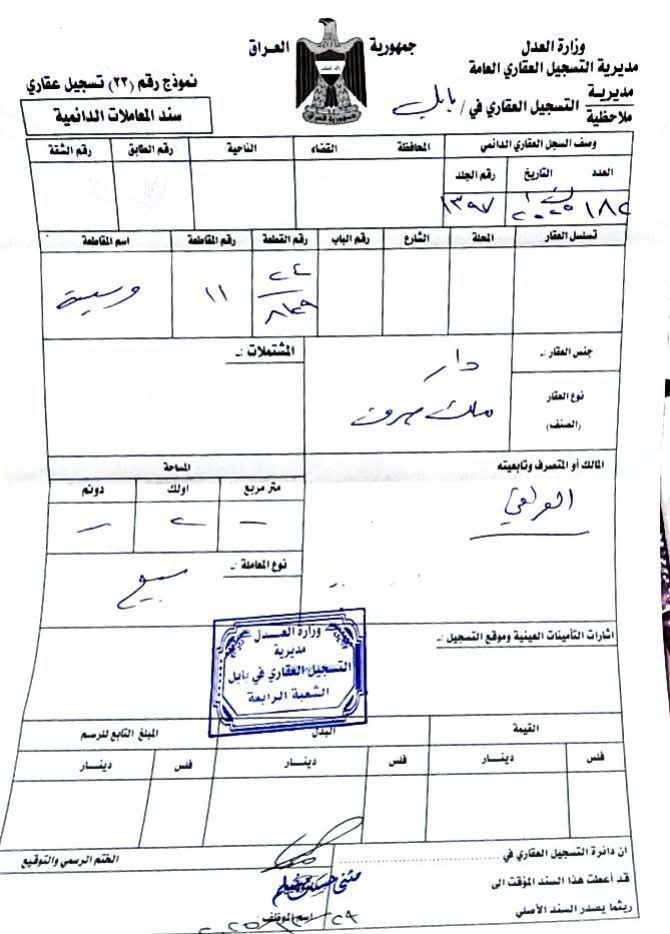 جمهورية العراق
وزارة العدل
مديرية التسجيل العقاري العامة
مديرية
ملاحظية
التسجيل العقاري في / بابل
نموذج رقم (٢٣) تسجيل عقاري
سند المعاملات الدائمية
وصف السجل العقاري الدائمي المحافظة القضاء الناحية رقم الطابق رقم الشقة
العدد التاريخ رقم الجلد
١٨٢ ٢٠٢٥ ١٣٩٧
تسلسل العقار المحلة الشارع رقم الباب رقم القطعة رقم المقاطعة اسم المقاطعة
١١
جنس العقار :ـ
دار
المشتملات :ـ
نوع العقار
(الصنف)
ملك صرف
المالك أو المتصرف وتابعيته
العراقي
المساحة
متر مربع اولك دونم
ـ ٢ ـ
نوع المعاملة :ـ
بيع
وزارة العدل
مديرية
التسجيل العقاري في بابل
الشعبة الرابعة
اشارات التأمينات العينية وموقع التسجيل :ـ
القيمة البدل المبلغ التابع للرسم
فلس دينـــار فلس دينـــار فلس دينـــار
ان دائرة التسجيل العقاري في
قد أعطت هذا السند المؤقت الى
ريثما يصدر السند الأصلي
الختم الرسمي والتوقيع
اسم الموظف